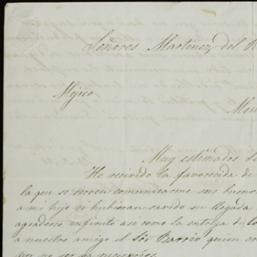 Señores Martinez del R
Mejico
Muy estimados S
He recivido la favorecida de
la que se sirven comunicarme sus buenos
a mi hijo si hubieran servido su llegada
agradezco infinito asi como la entrega de lo
a nuestro amigo el Sor Barrio quien co